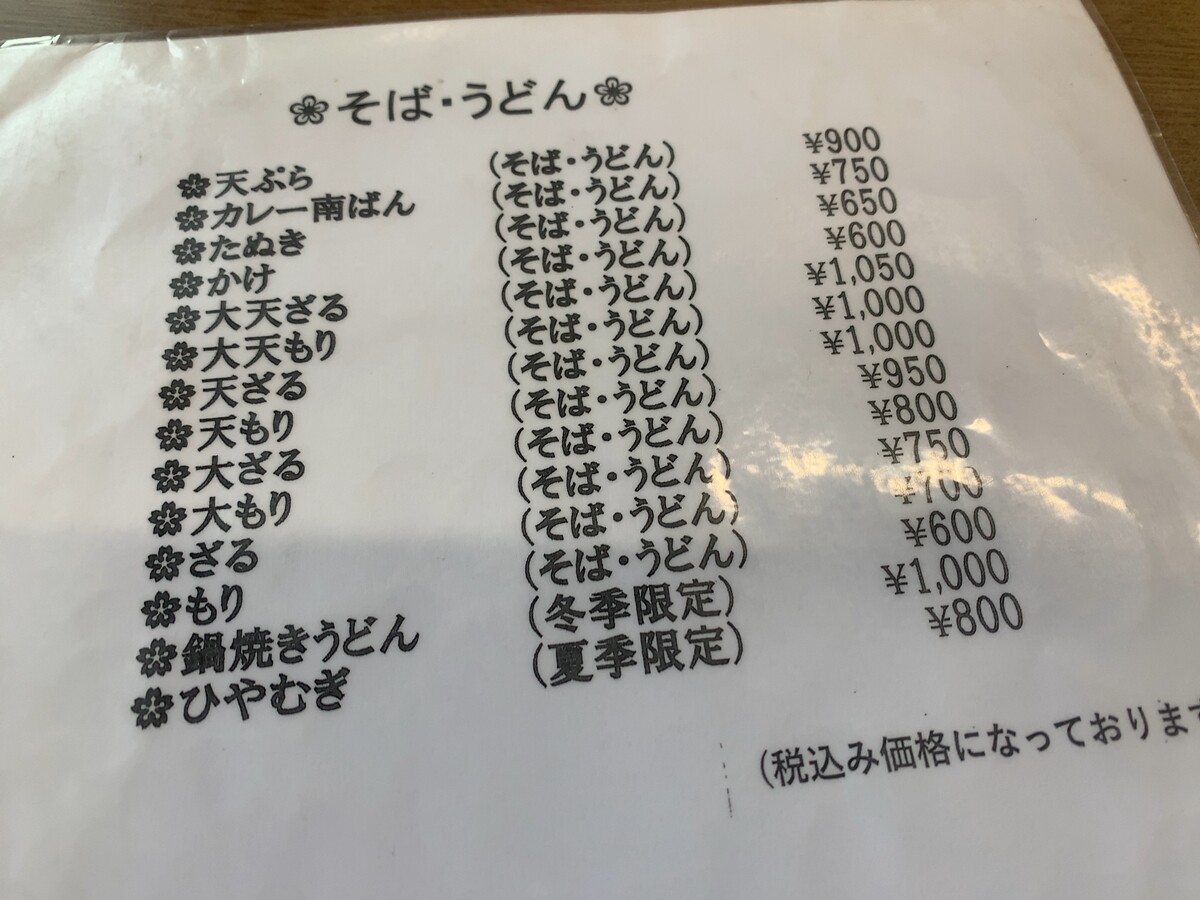 ❀そば・うどん❀
❀天ぷら (そば・うどん) ¥900
❀カレー南ばん (そば・うどん) ¥750
❀たぬき (そば・うどん) ¥650
❀かけ (そば・うどん) ¥600
❀大天ざる (そば・うどん) ¥1,050
❀大天もり (そば・うどん) ¥1,000
❀天ざる (そば・うどん) ¥1,000
❀天もり (そば・うどん) ¥950
❀大ざる (そば・うどん) ¥800
❀大もり (そば・うどん) ¥750
❀ざる (そば・うどん) ¥700
❀もり (そば・うどん) ¥600
❀鍋焼きうどん (冬季限定) ¥1,000
❀ひやむぎ (夏季限定) ¥800
(税込み価格になっております